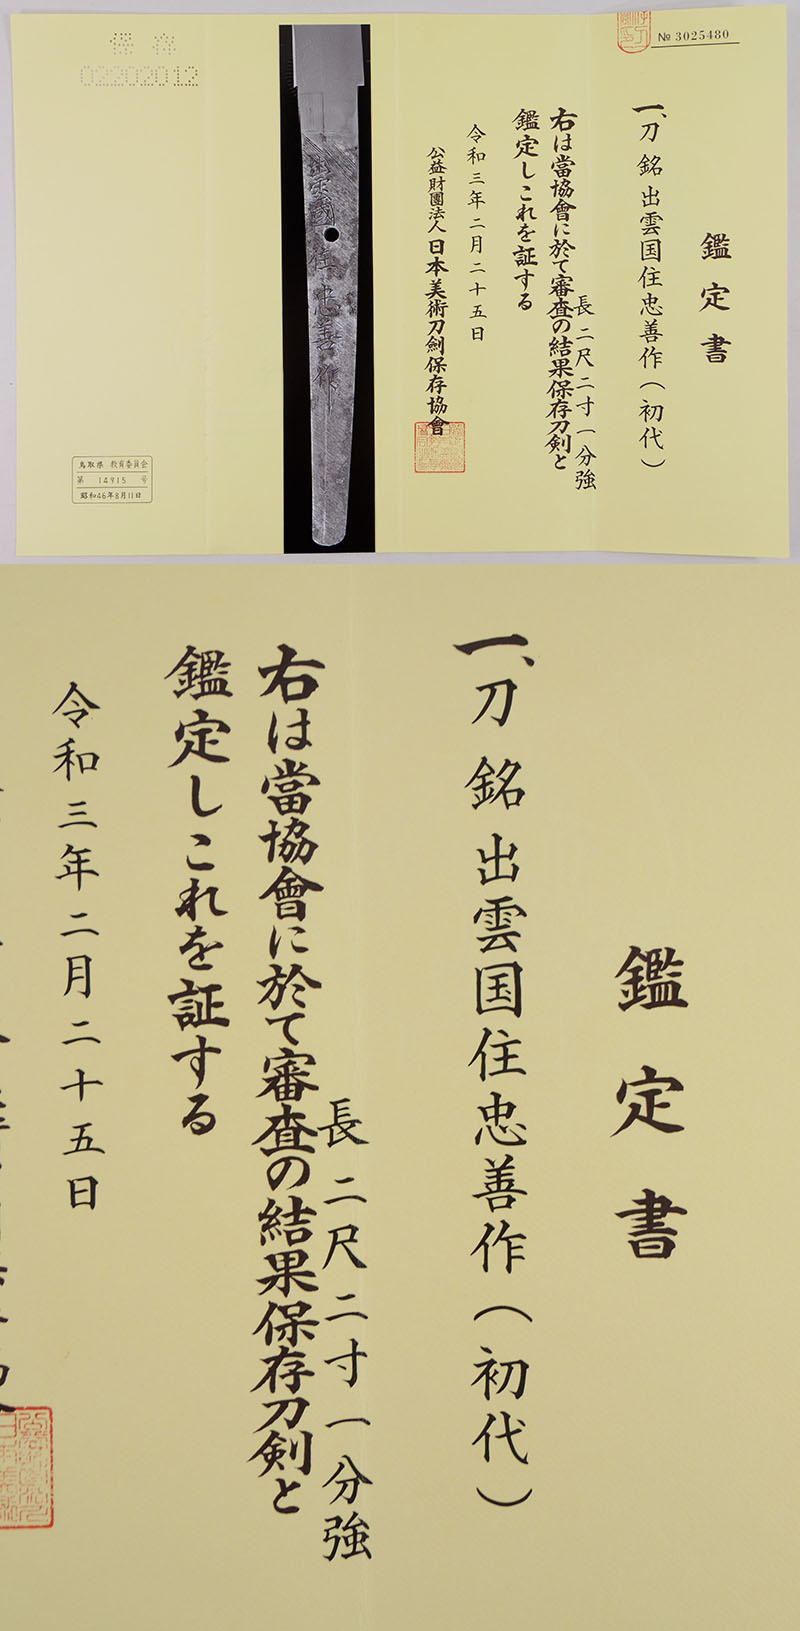 № 3025480
鑑定書
一、刀 銘 出雲国住忠善作（初代）
長 二尺二寸一分強
右は當協會に於て審査の結果保存刀剣と
鑑定しこれを証する
令和三年二月二十五日
公益財團法人 日本美術刀劍保存協會
出雲國住忠善作
保存
02202012
鳥取県 教育委員会
第 14915 号
昭和46年8月11日
鑑定書
一、刀 銘 出雲国住忠善作（初代）
長 二尺二寸一分強
右は當協會に於て審査の結果保存刀剣と
鑑定しこれを証する
令和三年二月二十五日